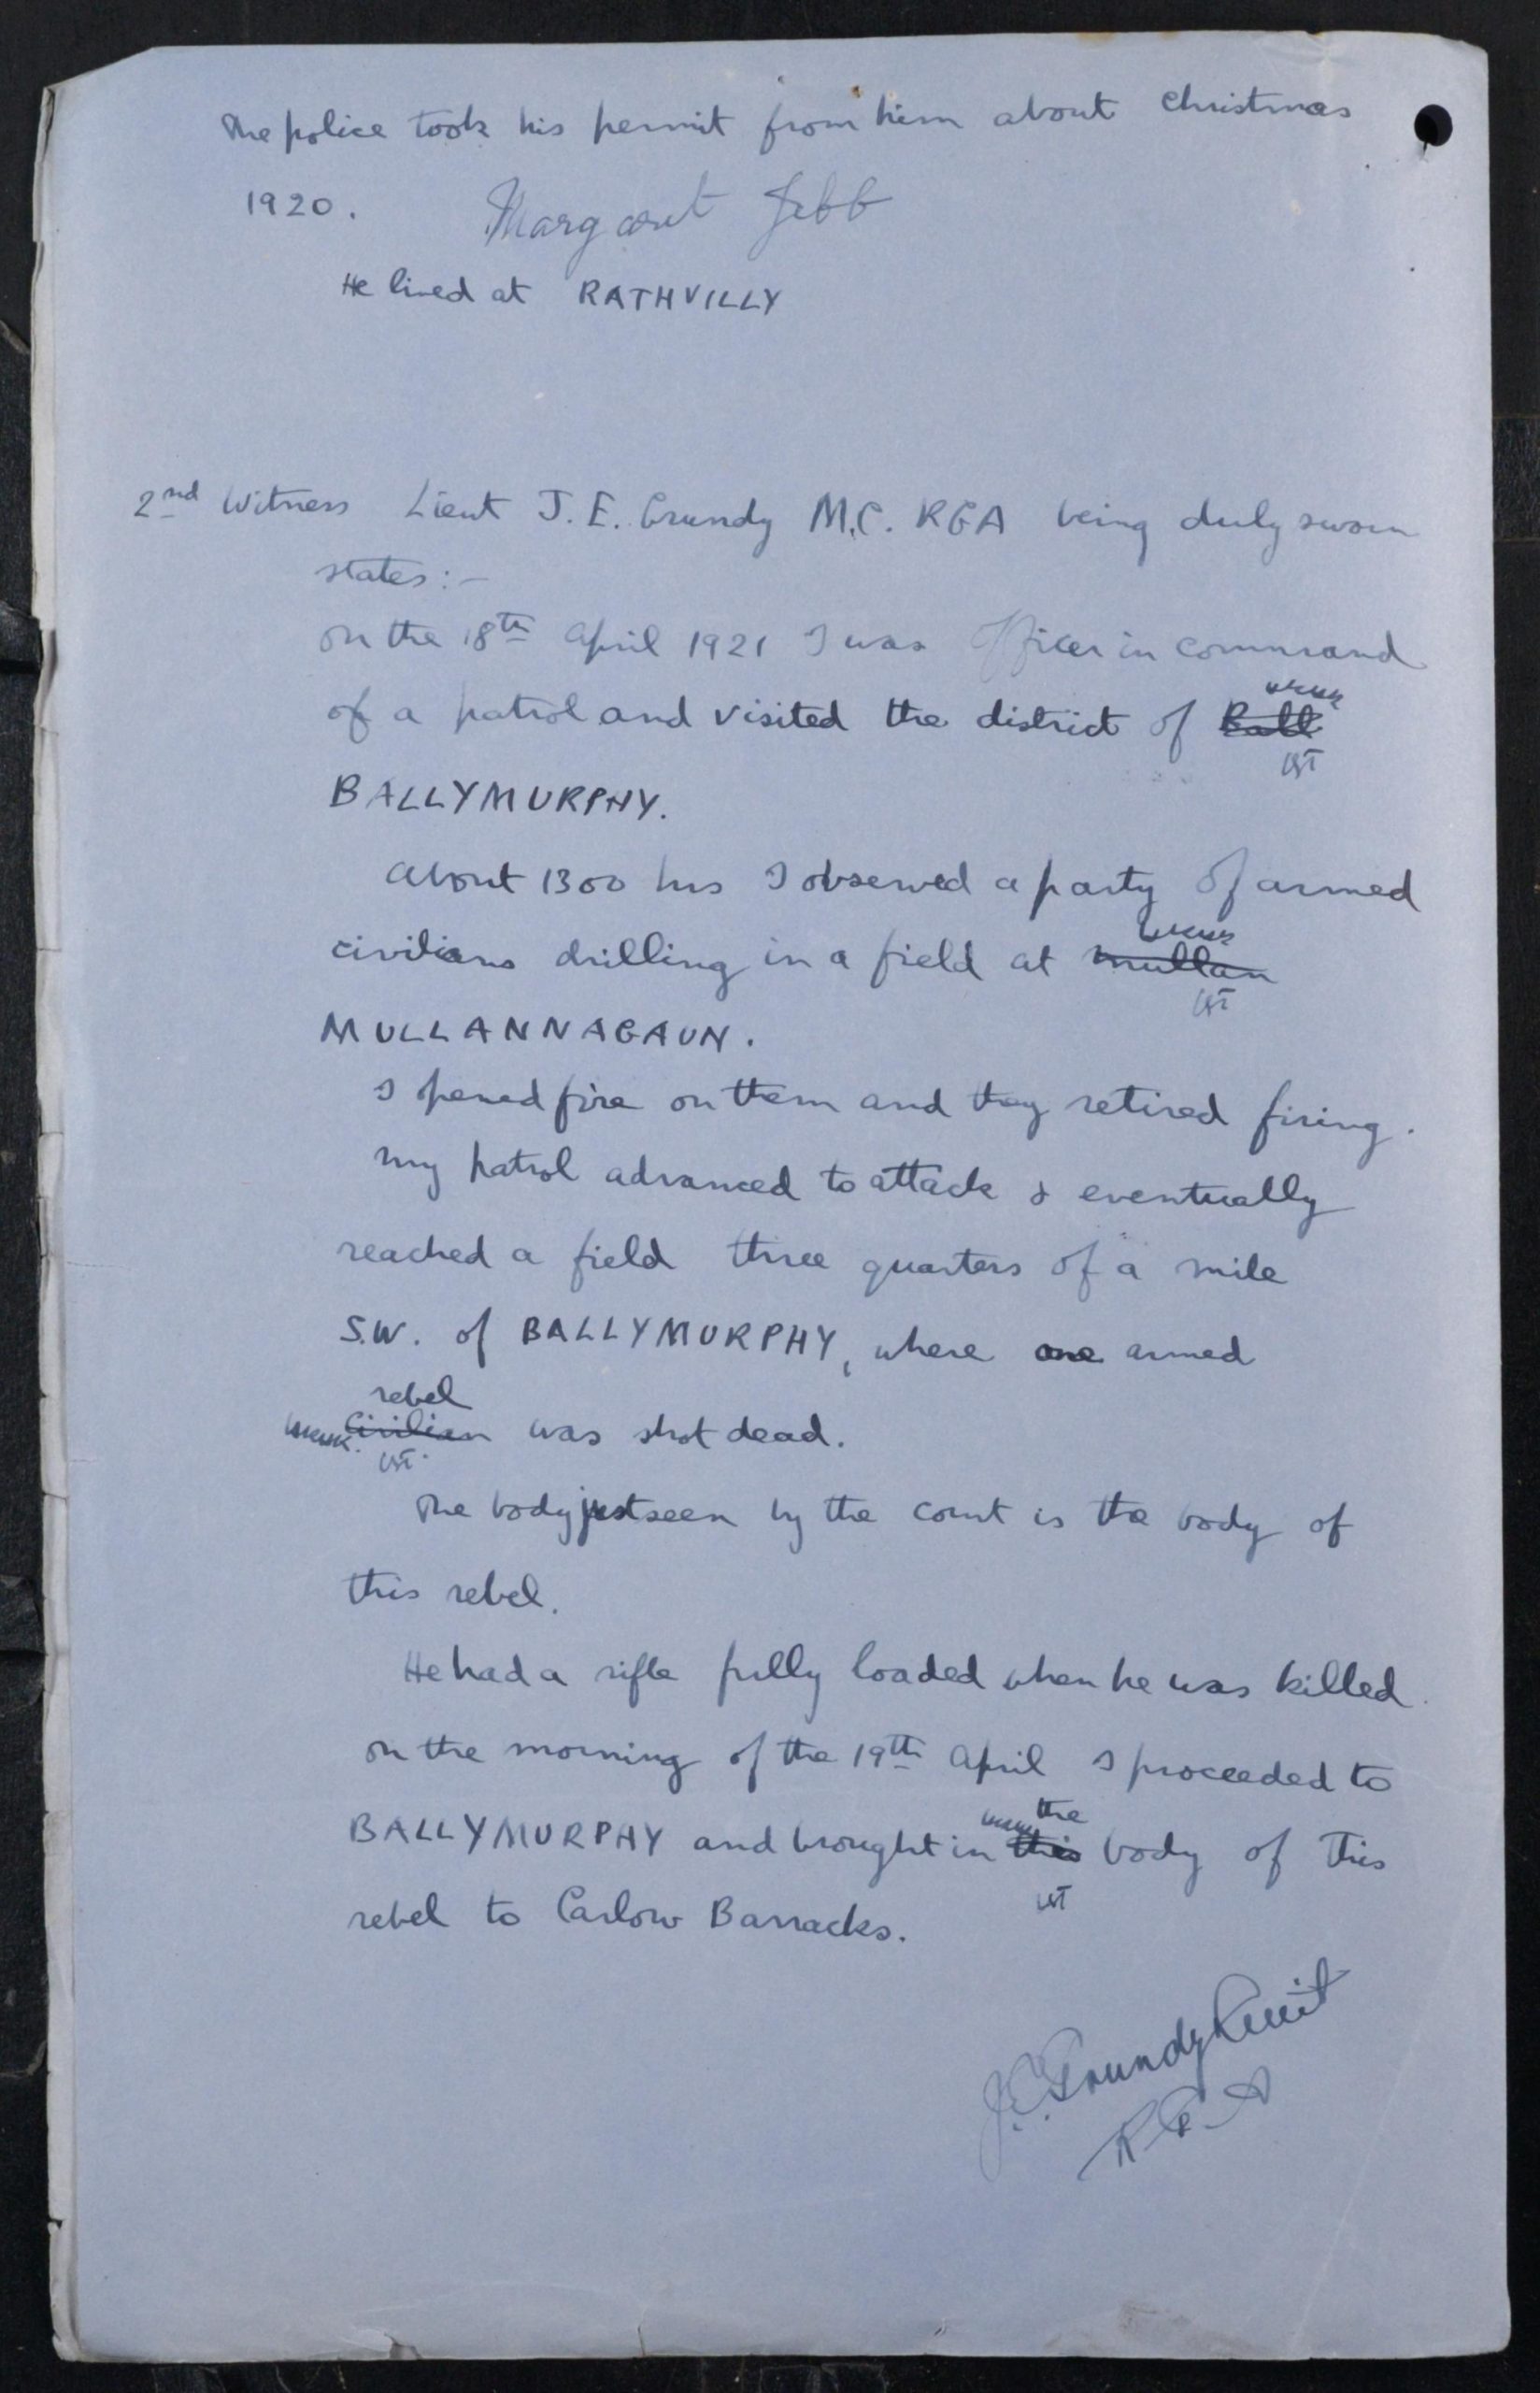 The police took his permit from him about Christmas
1920.
Margaret Jebb
He lived at RATHVILLY
2nd Witness Lieut J. E. Grundy M.C. RGA being duly sworn
states:-
on the 18th April 1921 I was Officer in command
of a patrol and visited the district of Ball
BALLYMURPHY.
About 1300 hrs I observed a party of armed
civilians drilling in a field at Mullan
MULLANNAGAUN.
I opened fire on them and they retired firing.
My patrol advanced to attack & eventually
reached a field three quarters of a mile
S.W. of BALLYMURPHY, where one armed
rebel
Civilian was shot dead.
The body just seen by the court is the body of
this rebel.
He had a rifle fully loaded when he was killed.
on the morning of the 19th April I proceeded to
the
BALLYMURPHY and brought in this body of this
rebel to Carlow Barracks.
J.E. Grundy Lieut
R.G.A